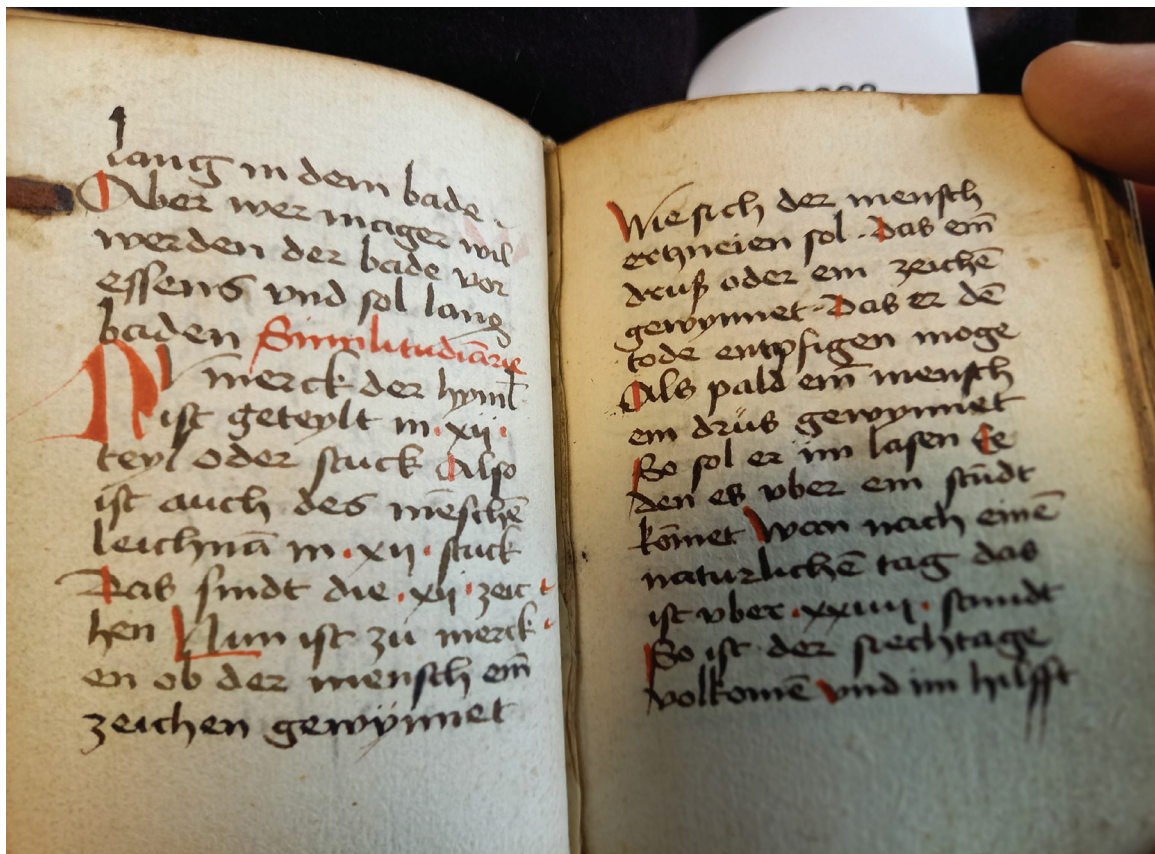 lang in dem bade
Aber wer mager wil
werden der bade vor
essens vnd sol lang
baden Similitudinarie
NV merck der hyml
ist geteylt in · xij ·
teyl oder stuck Also
ist auch des mēschē
leichnā in · xij · stuck
Das sindt die · xij · zeic
hen Nun ist zu merck
en ob der mensch ein̄
zeichen gewÿnnet
Wie sich der mensch
ertzneien sol · Das ein̄
druß oder ein zeichē
gewynnet · Das er dē
tode entpfigen moge
Als pald ein̄ mensch
ein drüs gewynnet
So sol er im lasen Ee
den es vber ein stūdt
kōmet Wan nach einē
naturlichē tag das
ist vber · xxiiij · stundt
So ist der siechtage
volkomē vnd im hilfft